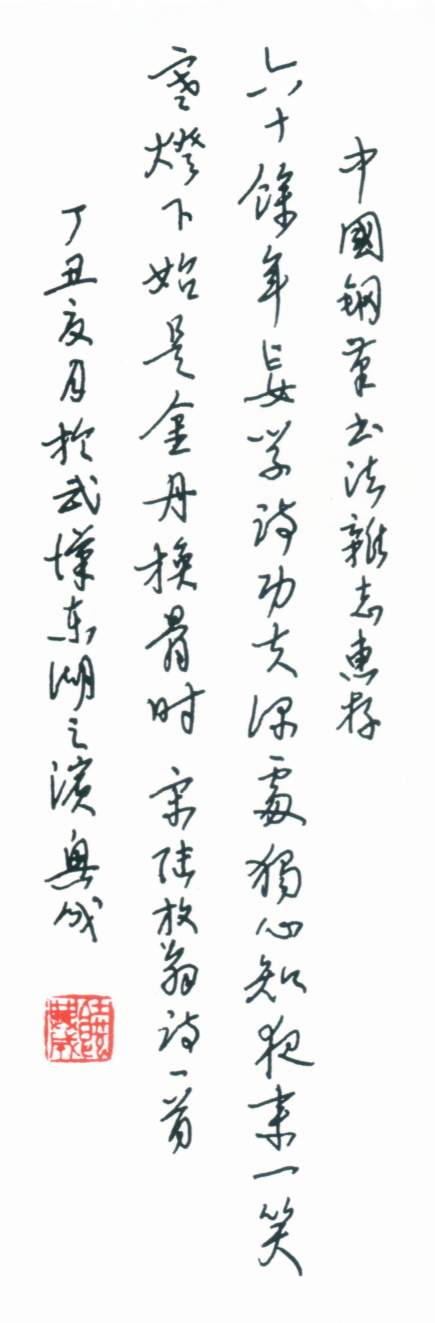 中國鋼筆书法雜志惠存
六十餘年妄学詩功夫深處獨心知夜来一笑
寒燈下始是金丹換骨时 宋陆放翁詩一首
丁丑亥月於武漢东湖之濱